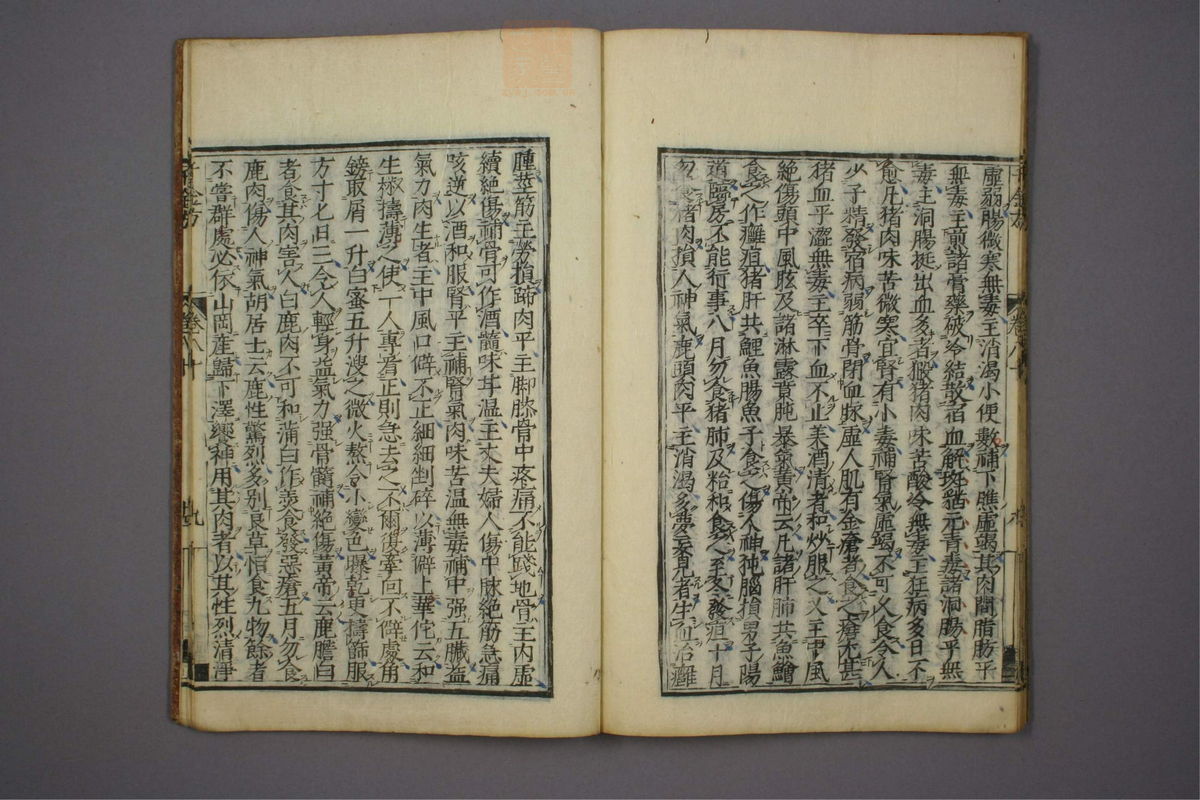 虛羸腸微寒無毒主消渴小便數補下膲虛竭其肉間脂肪平
無毒主煎諸膏藥破冷結散宿血解斑猫元青毒諸洞腸平無
毒主洞腸挺出血多者猳猪肉味苦酸冷無毒主狂病多日不
愈凡猪肉味苦微寒宜腎有小毒補腎氣虛竭不可久食令人
少子精發宿病弱筋骨閉血脉虛人肌有金瘡者食之瘡尤甚
猪血平澀無毒主卒下血不止美酒清者和炒服之又主中風
絕傷頭中風眩及諸淋露賁肫暴氣黃帝云凡諸肝肺共魚鱠
食之作癰疽猪肝共鯉魚腸魚子食之傷人神㹠腦損男子陽
道臨房不能行事八月勿食猪肺及粭和食之至冬發疽十月
勿食猪肉損人神氣鹿頭肉平主消渴多夢妄見者生血治癰
腫莖筋主勞損蹄肉平主脚膝骨中疼痛不能踐地骨主內虛
續絕傷補骨可作酒髓味甘溫主丈夫婦人傷中脉絕筋急痛
咳逆以酒和服腎平主補腎氣肉味苦溫無毒補中强五臟益
氣力肉生者主中風口僻不正細細剉碎以薄僻上華佗云和
生椒擣薄之使一人專看正則急去之不爾復牽回不僻處角
鎊取屑一升白蜜五升溲之微火熬令小變色曝乾更擣篩服
方寸匕日三令人輕身益氣力强骨髓補絕傷黃帝云鹿膽白
者食其肉害人白鹿肉不可和蒲白作羹食發惡瘡五月勿食
鹿肉傷人神氣胡居士云鹿性驚烈多別良草恒食九物餘者
不嘗群處必依山岡產歸下澤饗神用其肉者以其性烈清淨
千金方
卷八十
九